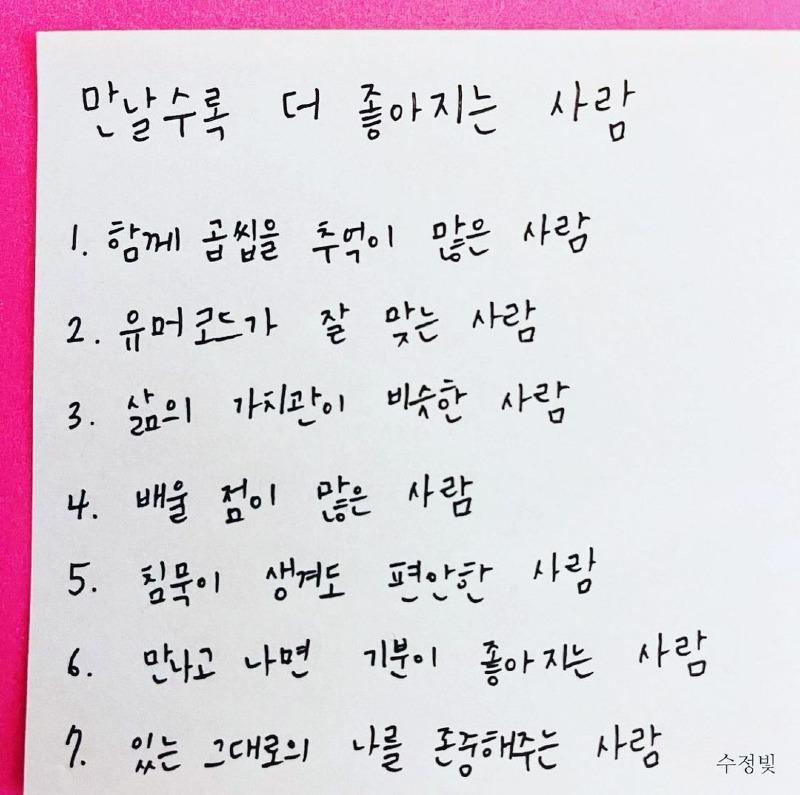 만날수록 더 좋아지는 사람
1. 함께 곱씹을 추억이 많은 사람
2. 유머코드가 잘 맞는 사람
3. 삶의 가치관이 비슷한 사람
4. 배울 점이 많은 사람
5. 침묵이 생겨도 편안한 사람
6. 만나고 나면 기분이 좋아지는 사람
7. 있는 그대로의 나를 존중해주는 사람
수정빛